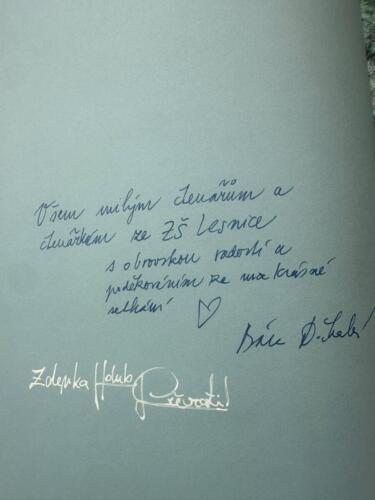 Všem milým čtenářům a
čtenářkám ze ZŠ Lesnice
s obrovskou radostí a
poděkováním za krásné
setkání
Bára
Zdeňka Holub